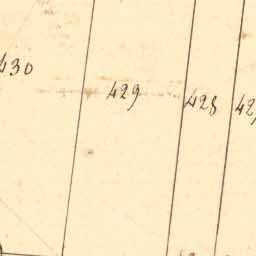 430
429
428